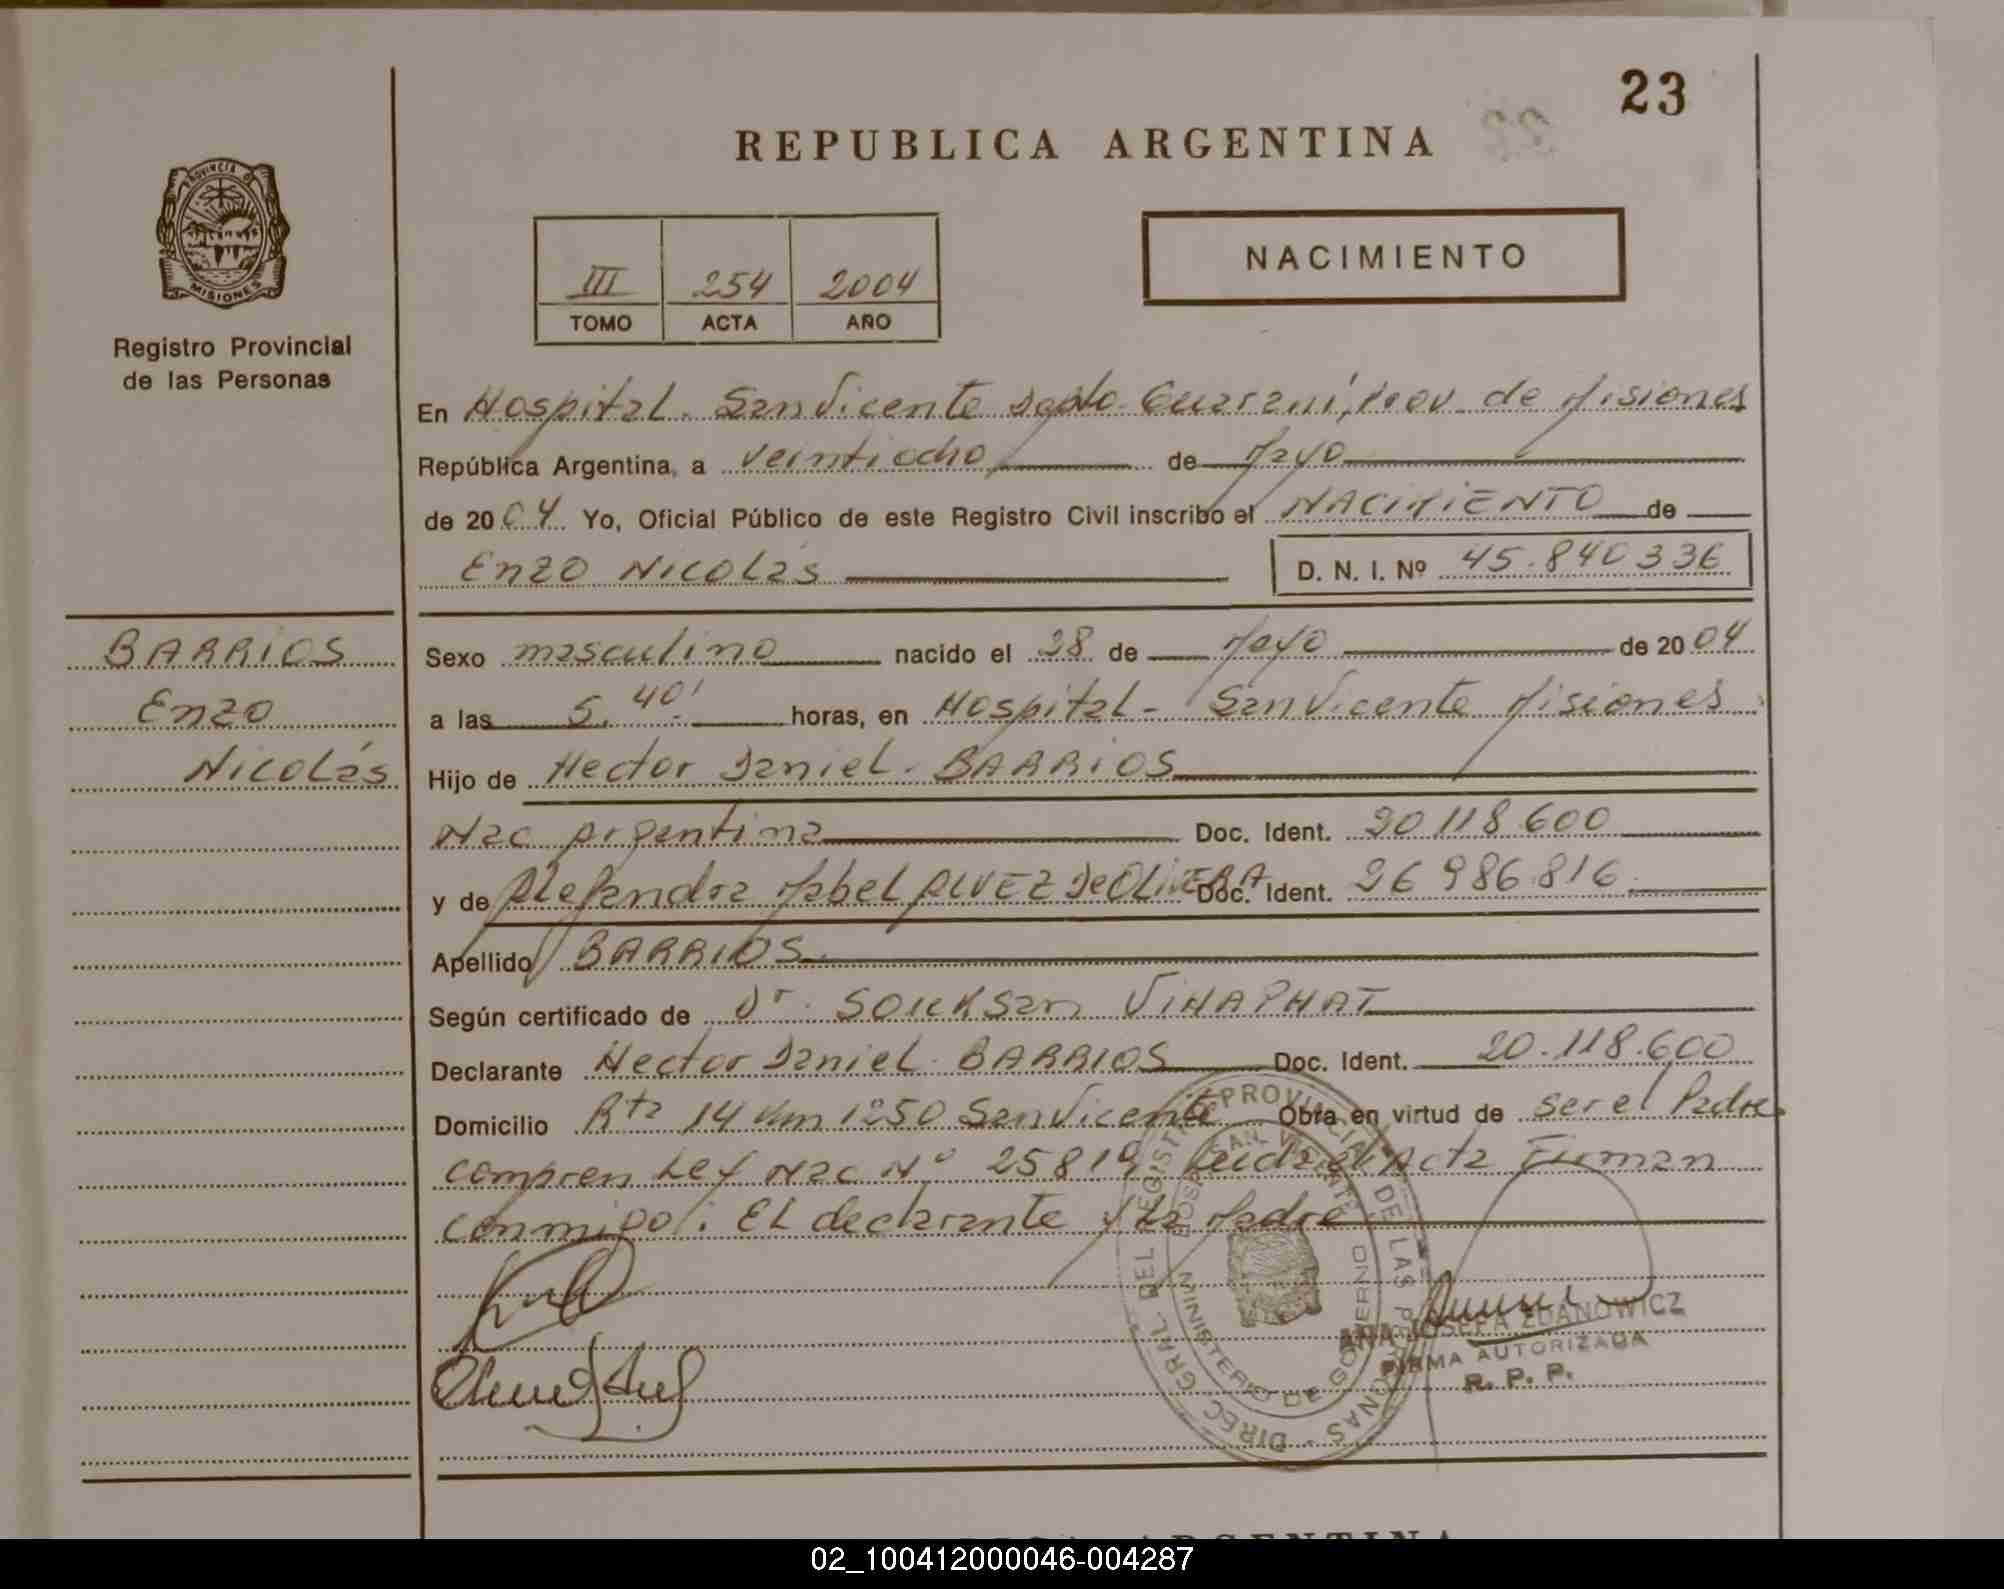 23
REPUBLICA ARGENTINA
III 254 2004
TOMO ACTA AÑO
NACIMIENTO
PROVINCIA DE
MISIONES
Registro Provincial
de las Personas
En Hospital. San Vicente Dpto Guaraní, Prov. de Misiones
República Argentina, a veintiocho de Mayo
de 2004 Yo, Oficial Público de este Registro Civil inscribo el NACIMIENTO de
Enzo Nicolás D. N. I. Nº 45.840336
BARRIOS
Enzo
Nicolás
Sexo masculino nacido el 28 de Mayo de 2004
a las 5.40' horas, en Hospital - San Vicente Misiones
Hijo de Hector Daniel. BARRIOS
Nac Argentina Doc. Ident. 20118600
y de Alejandra Mabel ALVEZ De OLIVERA Doc. Ident. 26986816
Apellido BARRIOS
Según certificado de Dr. SOUKSAN VIHAPHAT
Declarante Hector Daniel. BARRIOS Doc. Ident. 20.118.600
Domicilio Rta 14 Km 1250 San Vicente Obra en virtud de ser el Padre
compren Ley Nac Nº 25819, Leida el Acta Firman
conmigo: El declarante y la Madre
DIREC. GRAL. DEL REGISTRO PROVINCIAL DE LAS PERSONAS
HOSPITAL SAN VICENTE
MINISTERIO DE GOBIERNO
ANA JOSEFA ZDANOWICZ
FIRMA AUTORIZADA
R. P. P.
02_100412000046-004287